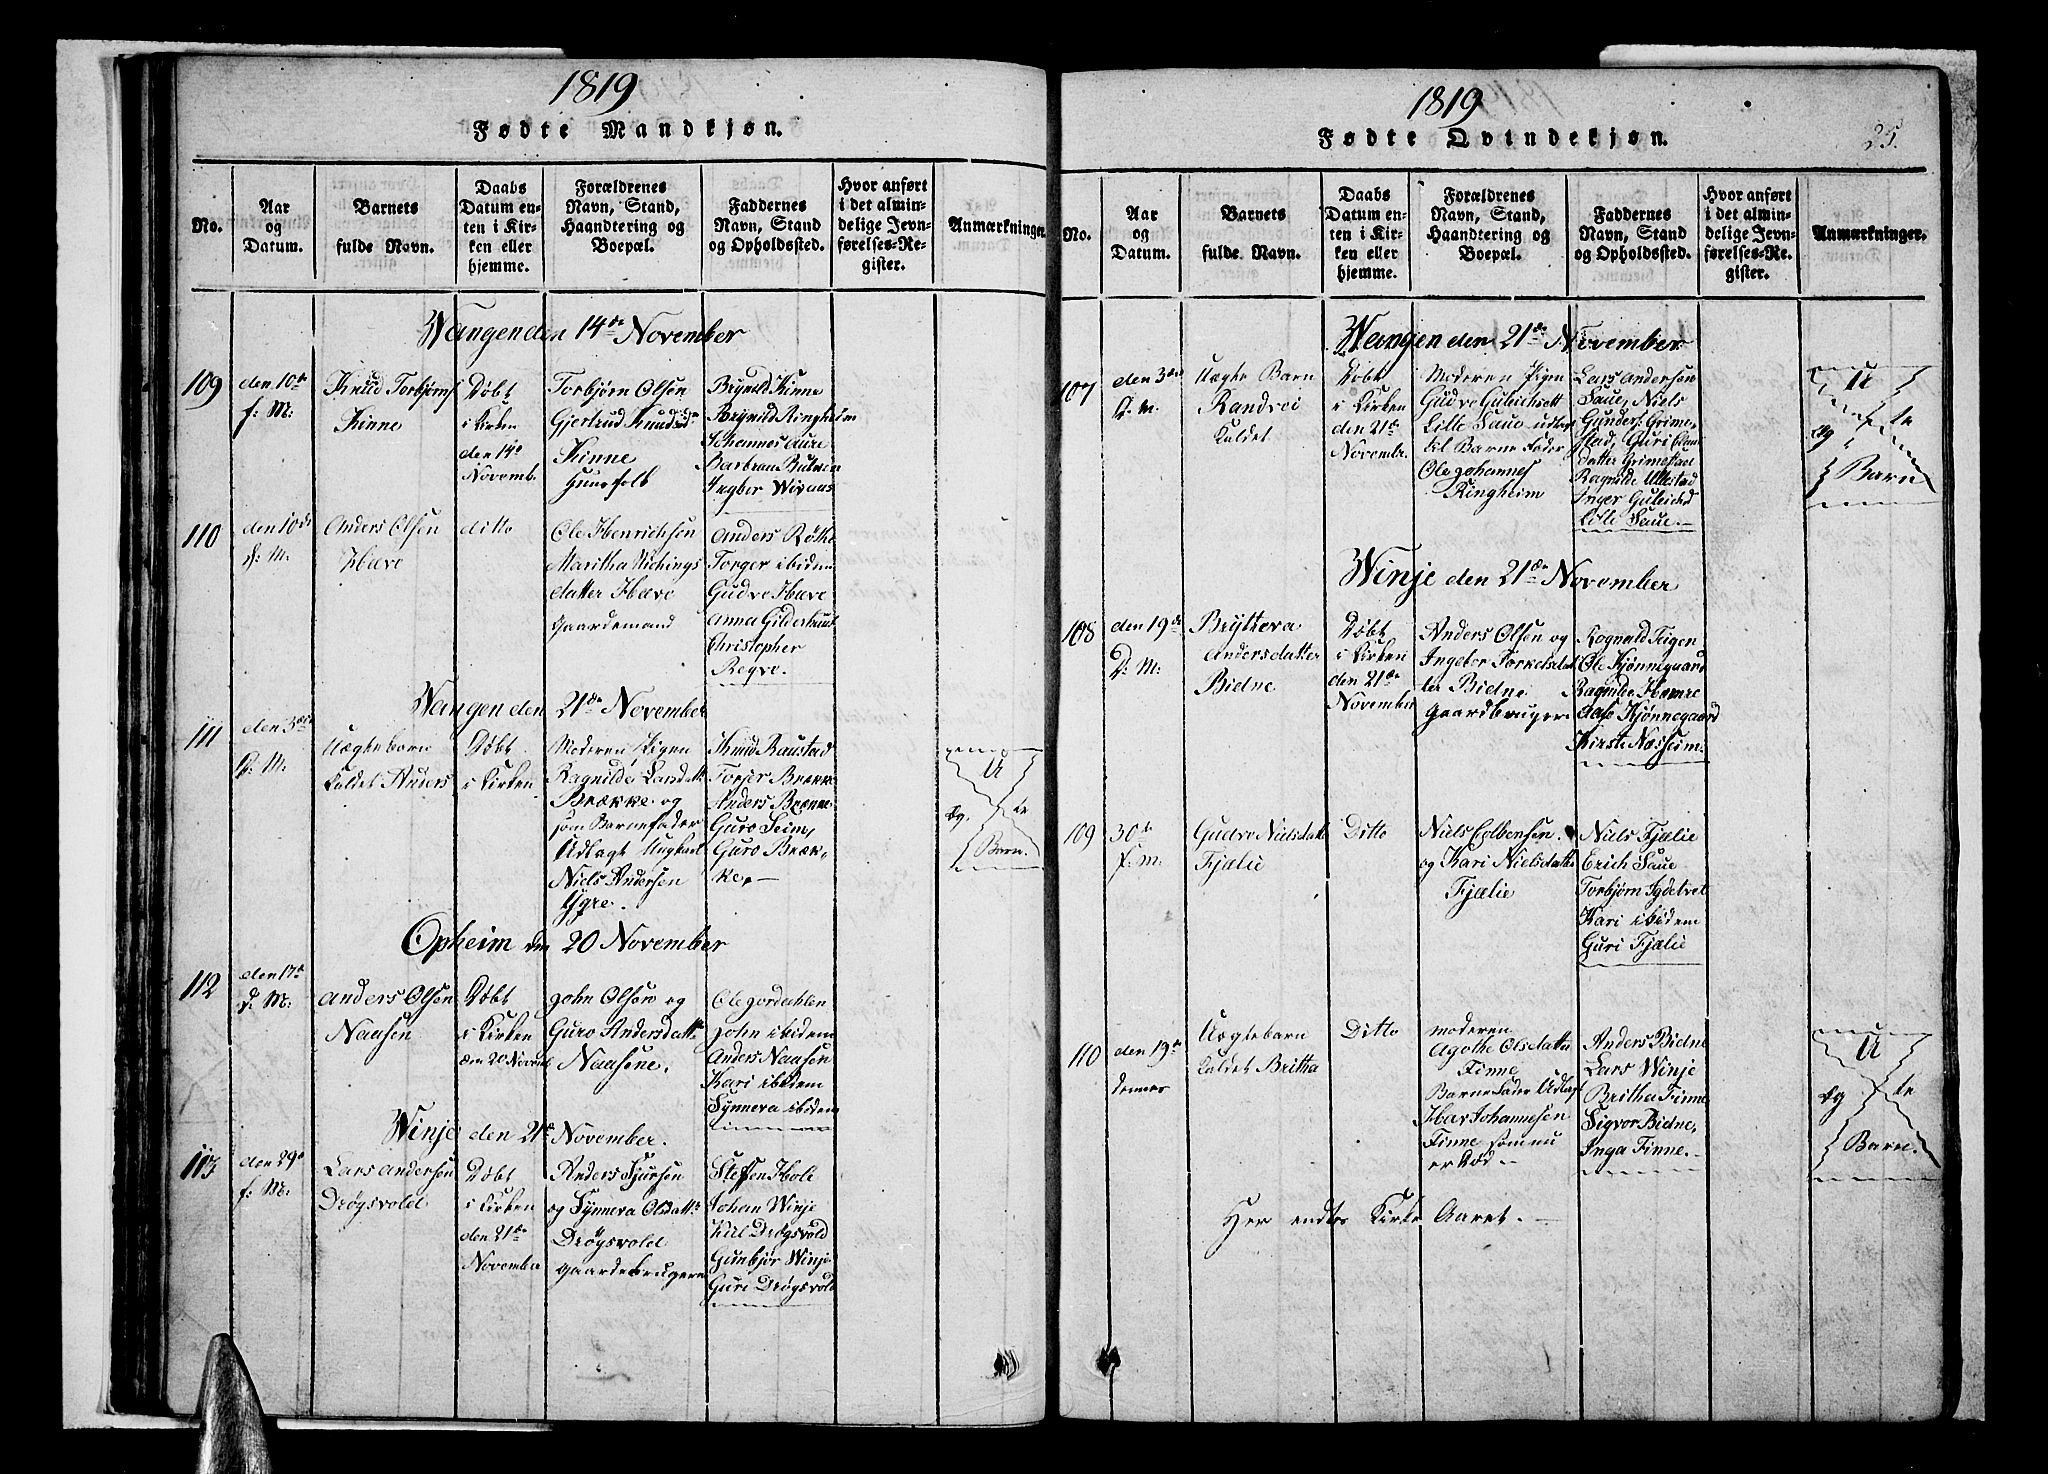 1819
Fødte Mandkjøn.
No.
Aar og Datum.
Barnets fulde Navn.
Daabs Datum enten i Kirken eller hjemme.
Forældrenes Navn, Stand, Haandtering og Boepæl.
Faddernes Navn, Stand og Opholdssted.
Hvor anført i det almindelige Jevnførelses-Register.
Anmærkninger.
Wangen den 14de November
109
den 10de
f: M:
Knud Torbjørns
Kinne
Døbt
i Kirken
den 14de
Novemb.
Torbjørn Olsen
Gjertrud Knudsd
Kinne
Huusfolk
Brynild Kinne
Brynild Ringheim
Johannes Aure
Barbrau
Ingber
110
den 10de
d: M:
Anders Olsen
Hæve
ditto
Ole Henrichsen
Maritha
datter Hæve
Gaardemand
Anders Røthe
Torger ibidem
Gudve Hæve
Anna Gilderhuus
Christopher
Regve.
Wangen den 21de November
111
den 3die
d: M:
Uægtebarn
kaldet Anders
Døbt
i Kirken
Moderen Pigen
Ragnilde Larsdatt
Brække og
som Barnefader
Udlagt Ungkarl
Niels Andersen
Ygre.
Knud Raustad
Torjer Brække
Anders Brække
Guro Seim,
Guro Bræk-
ke,
U
æg.
te
Barn.
Opheim den 20 November
112
den 17de
d: M:
Anders Olsen
Naasen
Døbt
i Kirken
den 20 Novemb
John Olsen og
Guro Andersdatt
Naasene.
Ole Jordahlen
John ibidem
Anders Naasen
Kari ibidem
Synneva ibidem
Winje den 21de November.
113
den 29de
f: M:
Lars Andersen
Drøgsvold
Døbt
i Kirken
den 21de
November
Anders Sjursen
og Synneva Olsdatte
Drøgsvold
Gaardebrugere
Steffen Hole
Johan Winje
Kiil Drøgsvold
Gunbjør Winje
Guri Drøgsvold
1819
Fødte Qvindekjøn.
25.
No.
Aar og Datum.
Barnets fulde Navn.
Daabs Datum enten i Kirken eller hjemme.
Forældrenes Navn, Stand, Haandtering og Boepæl.
Faddernes Navn, Stand og Opholdssted.
Hvor anført i det almindelige Jevnførelses-Register.
Anmærkninger.
Wangen den 21de November
107
den 3die
d. M.
Uægte Barn
Randvei
kaldet
Døbt
i Kirken
den 21de
Novembr.
Moderen Pigen
Gudve
Lille Saue udlagt
til Barne Fader
Ole Johannes
Ringheim
Lars Andersen
Saue, Niels
Gunders. Grime-
stad, Guri
datter Grimestad
Ragnilde Ullestad
Inger
Lille Saue.
U
æg
te
Barn
Winje den 21de November
108
den 19de
d: M:
Brytteva
Andersdatter
Bidne
Døbt
i Kirken
den 21de
November
Anders Olsen og
Ingebor Torkelsdat
ter Bidne
Gaardbruger
Rognald Teigen
Ole Kjønnegaard
Ragnilde Hæmre
Aase Kjønnegaard
Kirste Næsheim.
109
30te
f. m.
Gudve Nielsdatt
Fjælie
Ditto
Niels
og Kari Nielsdatte
Fjælie
Niels Fjælie
Erich Saue
Torbjørn
Kari ibidem
Guri Fjælie
110
den 19de
dennes
Uægtebarn
kaldet Britha
Ditto
Moderen
Agothe Olsdatter
Finne
Barne Fader Udlagt
Johannesen
Finne som nu
er død
Anders Bidne
Lars Winje
Britha Finne
Sigvor Bidne,
Inga Finne.
U
æg
te
Barn.
Her endtes Kirke Aaret.